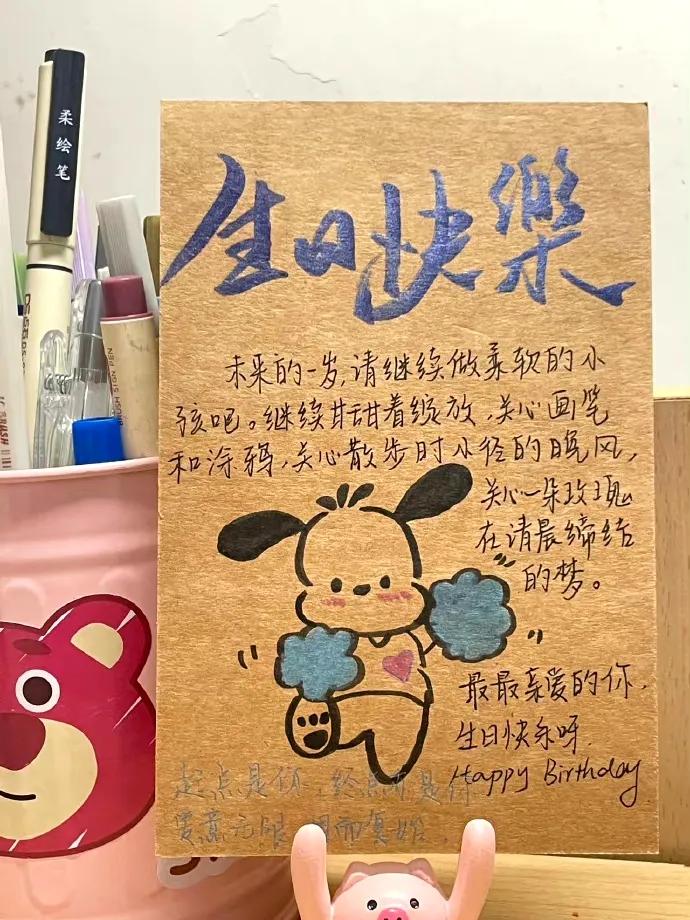 柔绘笔
生日快樂
未来的一岁,请继续做柔软的小
孩吧。继续甘甜着绽放,关心画笔
和涂鸦,关心散步时小径的晚风,
关心一朵玫瑰
在清晨缔结
的梦。
最最亲爱的你,
生日快乐呀.
Happy Birthday
起点是你,终点亦是你
爱意无限 周而复始.